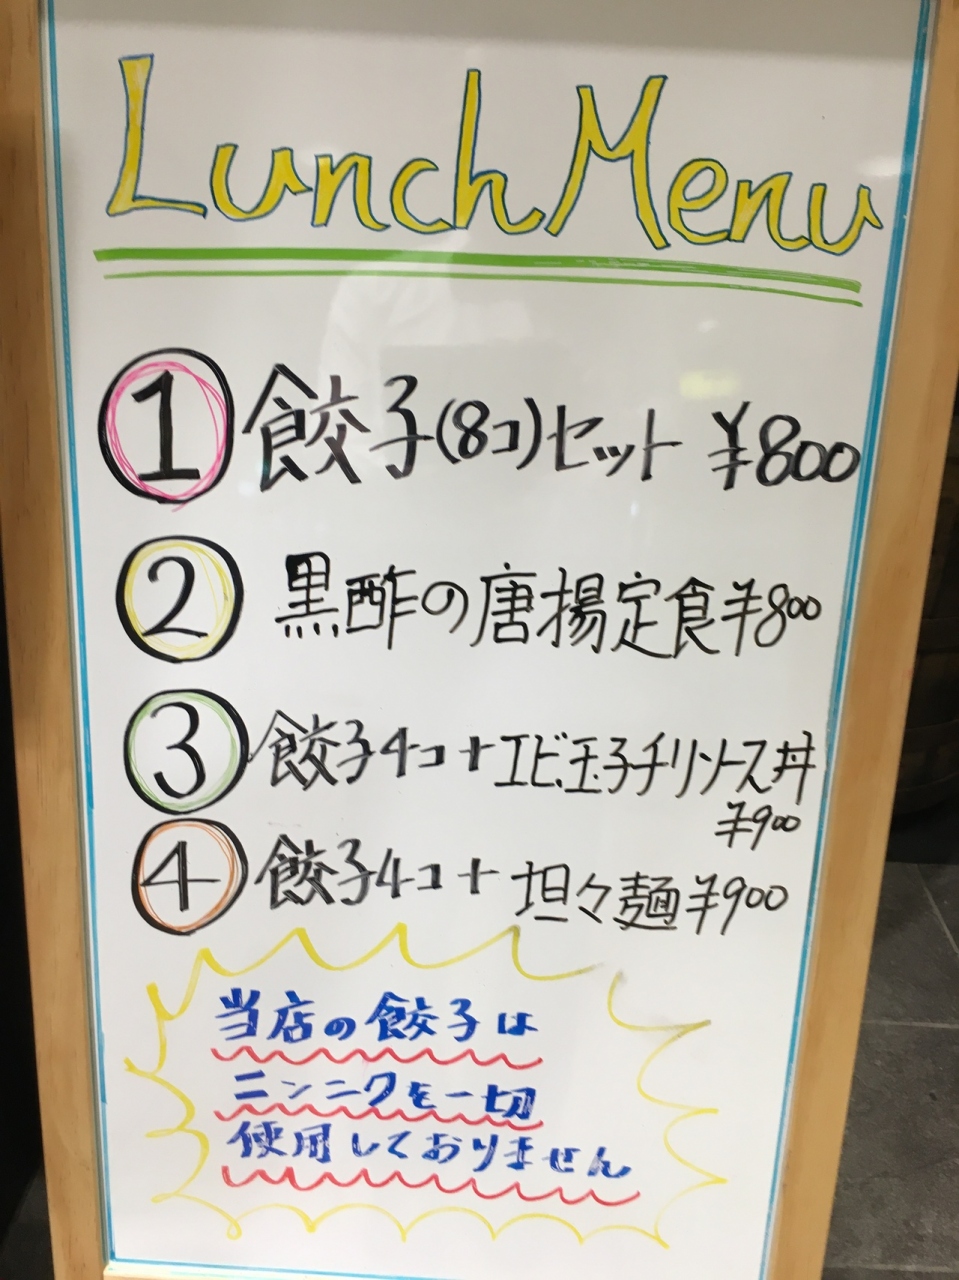 Lunch Menu
① 餃子(8コ)セット ¥800
② 黒酢の唐揚定食¥800
③ 餃子4コ+エビ玉子チリソース丼
¥900
④ 餃子4コ+坦々麺¥900
当店の餃子は
ニンニクを一切
使用しておりません